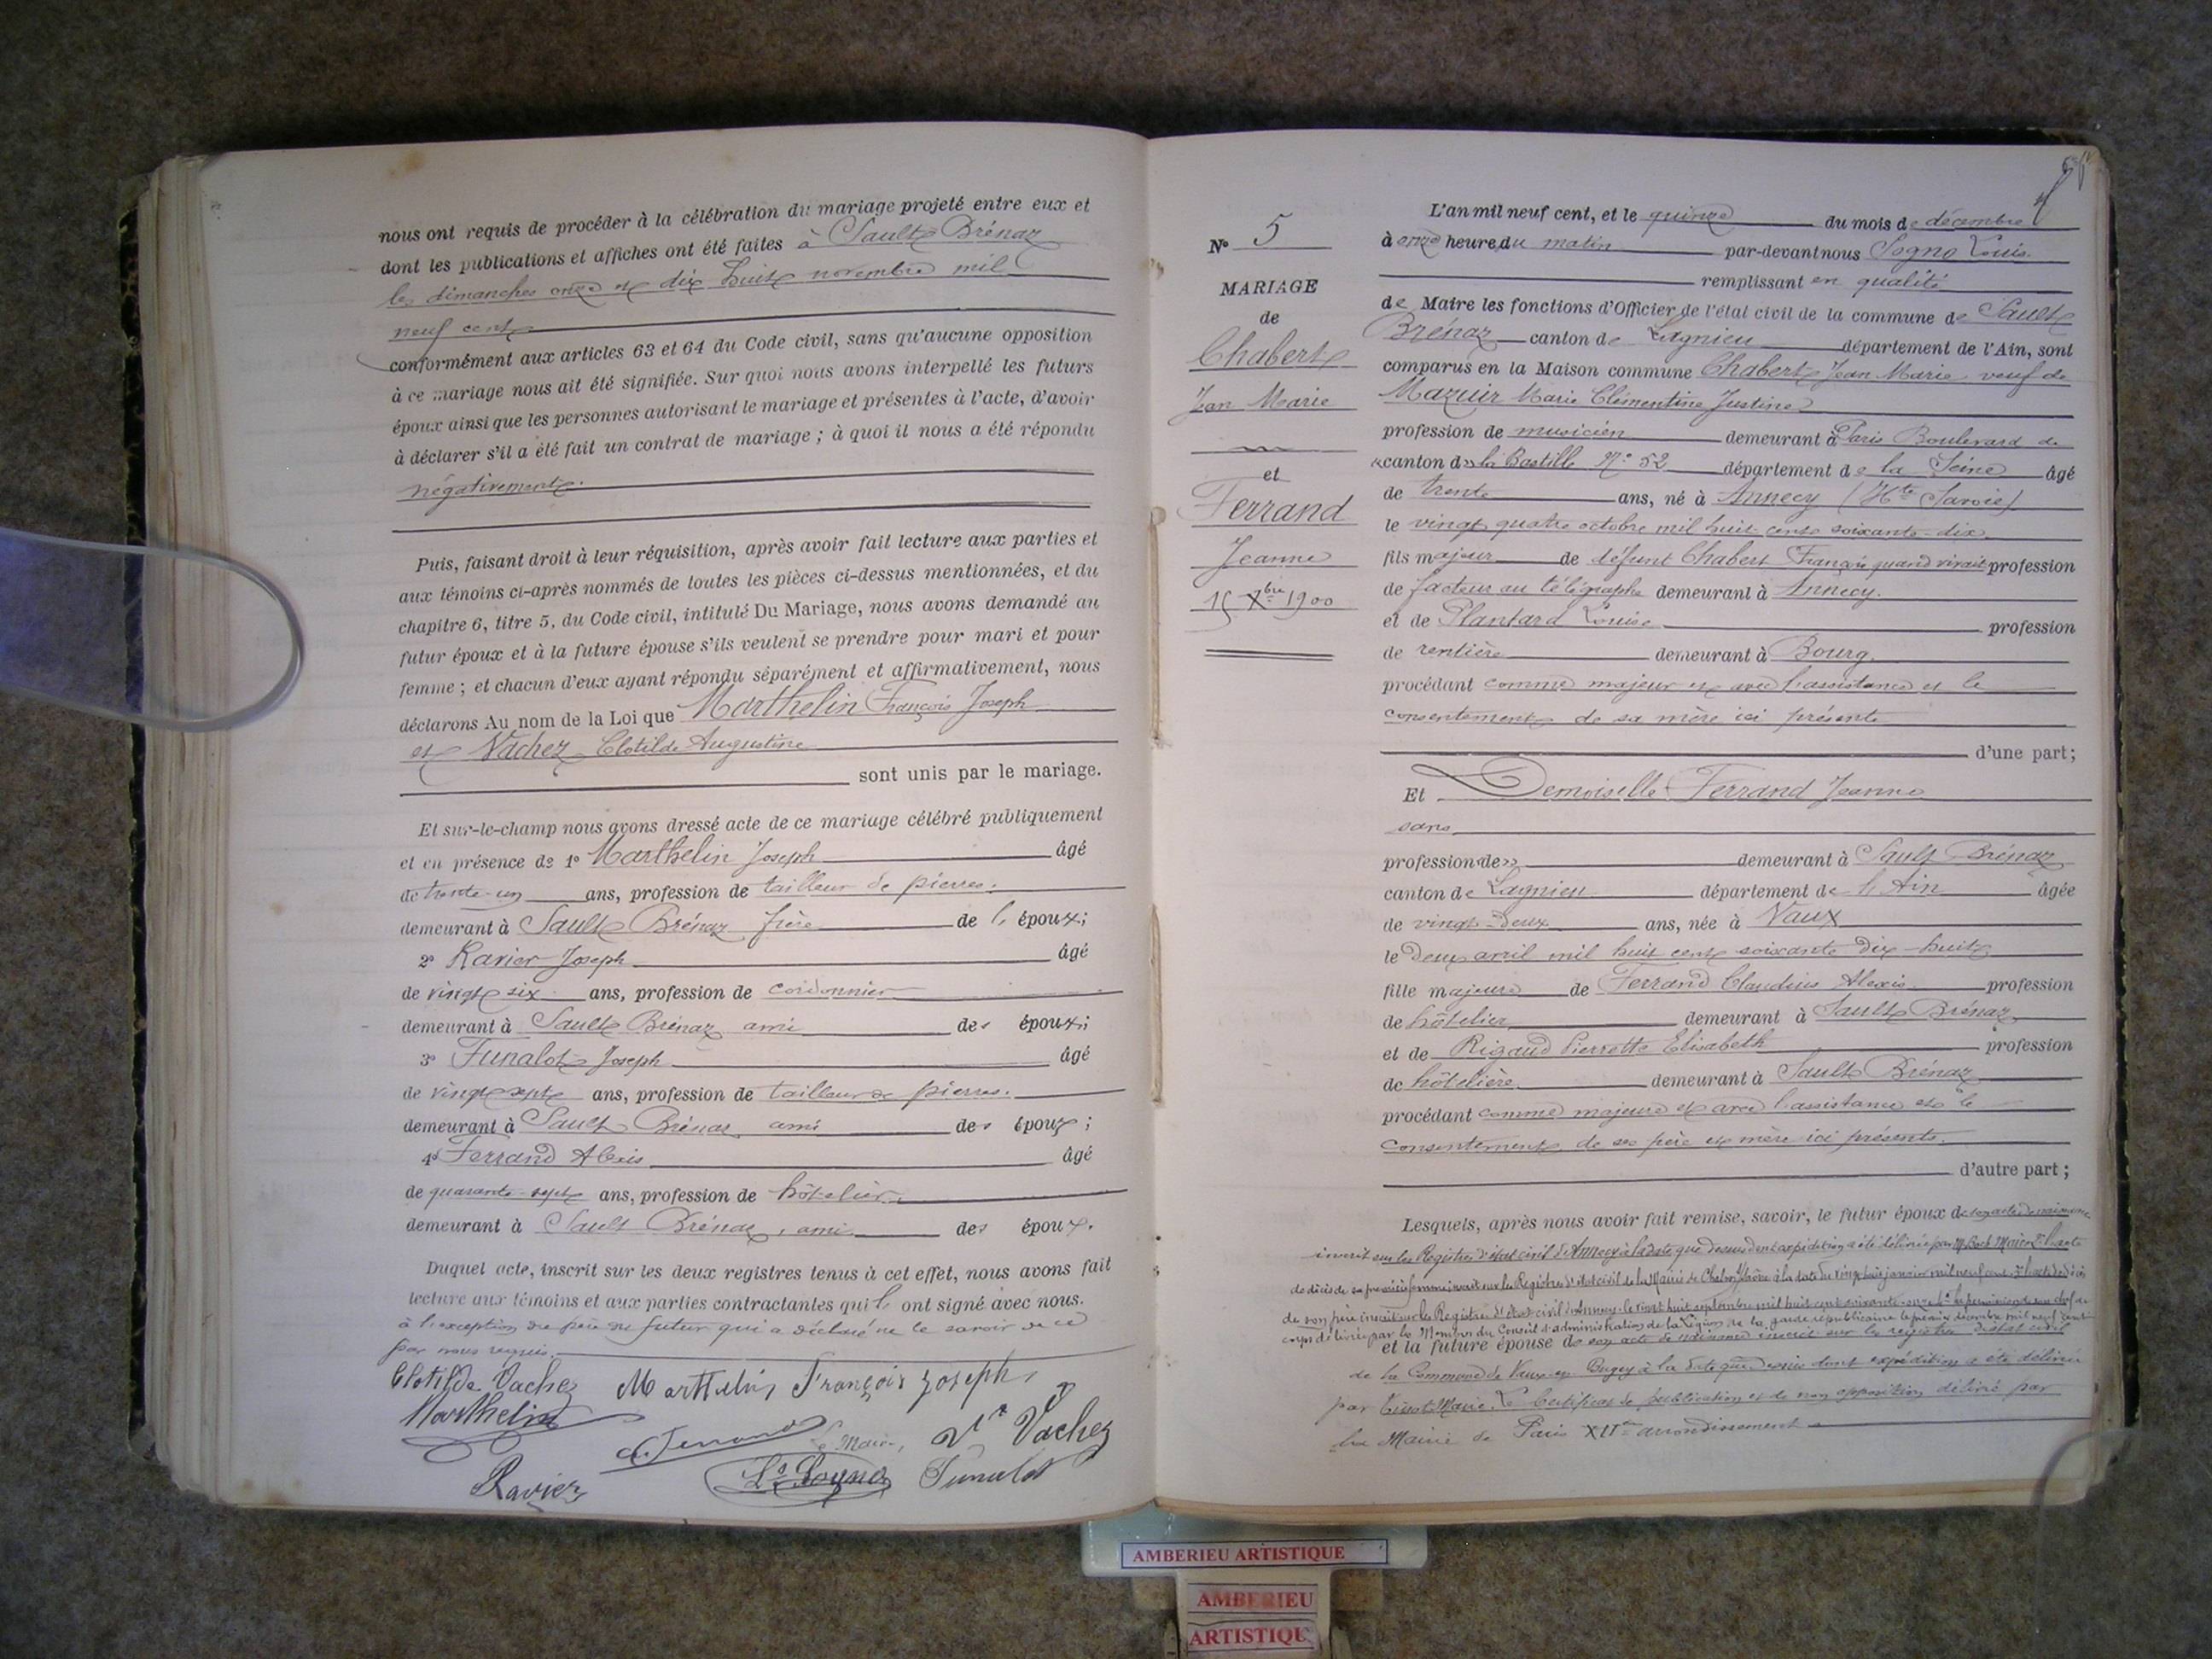 nous ont requis de procéder à la célébration du mariage projeté entre eux et
dont les publications et affiches ont été faites à Sault Brénaz
les dimanches onze et dix huit novembre mil
neuf cent
conformément aux articles 63 et 64 du Code civil, sans qu'aucune opposition
à ce mariage nous ait été signifiée. Sur quoi nous avons interpellé les futurs
époux ainsi que les personnes autorisant le mariage et présentes à l'acte, d'avoir
à déclarer s'il a été fait un contrat de mariage ; à quoi il nous a été répondu
négativement.
Puis, faisant droit à leur réquisition, après avoir fait lecture aux parties et
aux témoins ci-après nommés de toutes les pièces ci-dessus mentionnées, et du
chapitre 6, titre 5, du Code civil, intitulé Du Mariage, nous avons demandé au
futur époux et à la future épouse s'ils veulent se prendre pour mari et pour
femme ; et chacun d'eux ayant répondu séparément et affirmativement, nous
déclarons Au nom de la Loi que Marthelin François Joseph
et Vachez Clotilde Augustine
sont unis par le mariage.
Et sur-le-champ nous avons dressé acte de ce mariage célébré publiquement
et en présence de 1° Marthelin Joseph âgé
de trente-un ans, profession de tailleur de pierres.
demeurant à Sault Brénaz frère de l' époux;
2° Ravier Joseph âgé
de vingt six ans, profession de cordonnier
demeurant à Sault Brénaz ami des époux;
3° Funalot Joseph âgé
de vingt sept ans, profession de tailleur de pierres.
demeurant à Sault Brénaz ami des époux ;
4° Ferrand Alexis âgé
de quarante-sept ans, profession de hôtelier
demeurant à Sault Brénaz, ami des époux.
Duquel acte, inscrit sur les deux registres tenus à cet effet, nous avons fait
lecture aux témoins et aux parties contractantes qui ont signé avec nous.
à l'exception du père du futur qui a déclaré ne le savoir de ce
par nous requis.
Clotilde Vachez Marthelin François Joseph
Marthelin
A. Ferrand Le Maire, Vachez
Ravier Ls Sogno Funalot
N° 5
MARIAGE
de
Chabert
Jean Marie
et
Ferrand
Jeanne
15 Xbre 1900
L'an mil neuf cent, et le quinze du mois de décembre
à onze heure du matin par-devant nous Sogno Louis.
remplissant en qualité
de Maire les fonctions d'Officier de l'état civil de la commune de Sault
Brénaz canton de Lagnieu département de l'Ain, sont
comparus en la Maison commune Chabert Jean Marie veuf de
Mazuir Marie Clémentine Justine
profession de musicien demeurant à Paris Boulevard de
canton de la Bastille N° 52 département de la Seine âgé
de trente ans, né à Annecy (Hte Savoie)
le vingt quatre octobre mil huit cent soixante-dix
fils majeur de défunt Chabert François quand vivait profession
de facteur au télégraphe demeurant à Annecy.
et de Plantard Louise profession
de rentière demeurant à Bourg.
procédant comme majeur et avec l'assistance et le
consentement de sa mère ici présente
d'une part;
Et Demoiselle Ferrand Jeanne
sans
profession de demeurant à Sault Brénaz
canton de Lagnieu département de l'Ain âgée
de vingt-deux ans, née à Vaux
le deux avril mil huit cent soixante dix-huit
fille majeure de Ferrand Claudius Alexis profession
de hôtelier demeurant à Sault Brénaz
et de Rigaud Pierrette Elisabeth profession
de hôtelière demeurant à Sault Brénaz
procédant comme majeure et avec l'assistance et le
consentement de ses père et mère ici présents.
d'autre part ;
Lesquels, après nous avoir fait remise, savoir, le futur époux de son acte de naissance
inscrit sur les Registres d'état civil d'Annecy à la date que dessus dont expédition a été délivrée par Maire 2° l'acte
de décès de sa première femme inscrit sur les Registres d'état civil de la Mairie de à la date du vingt huit janvier mil neuf cent 3° l'acte de décès
de son père inscrit sur les Registres d'état civil d'Annecy le vingt huit septembre mil huit cent soixante-onze 4° la permission de son chef de
corps délivrée par les Membres du Conseil d'administration de la Légion de la garde républicaine le décembre mil neuf cent
et la future épouse de son acte de naissance inscrit sur les registres d'état civil
de la Commune de Vaux-en-Bugey à la date que dessus dont expédition a été délivrée
par Maire. Le Certificat de publication et de non opposition délivré par
la Mairie de Paris arrondissement
AMBERIEU ARTISTIQUE
AMBERIEU
ARTISTIQUE